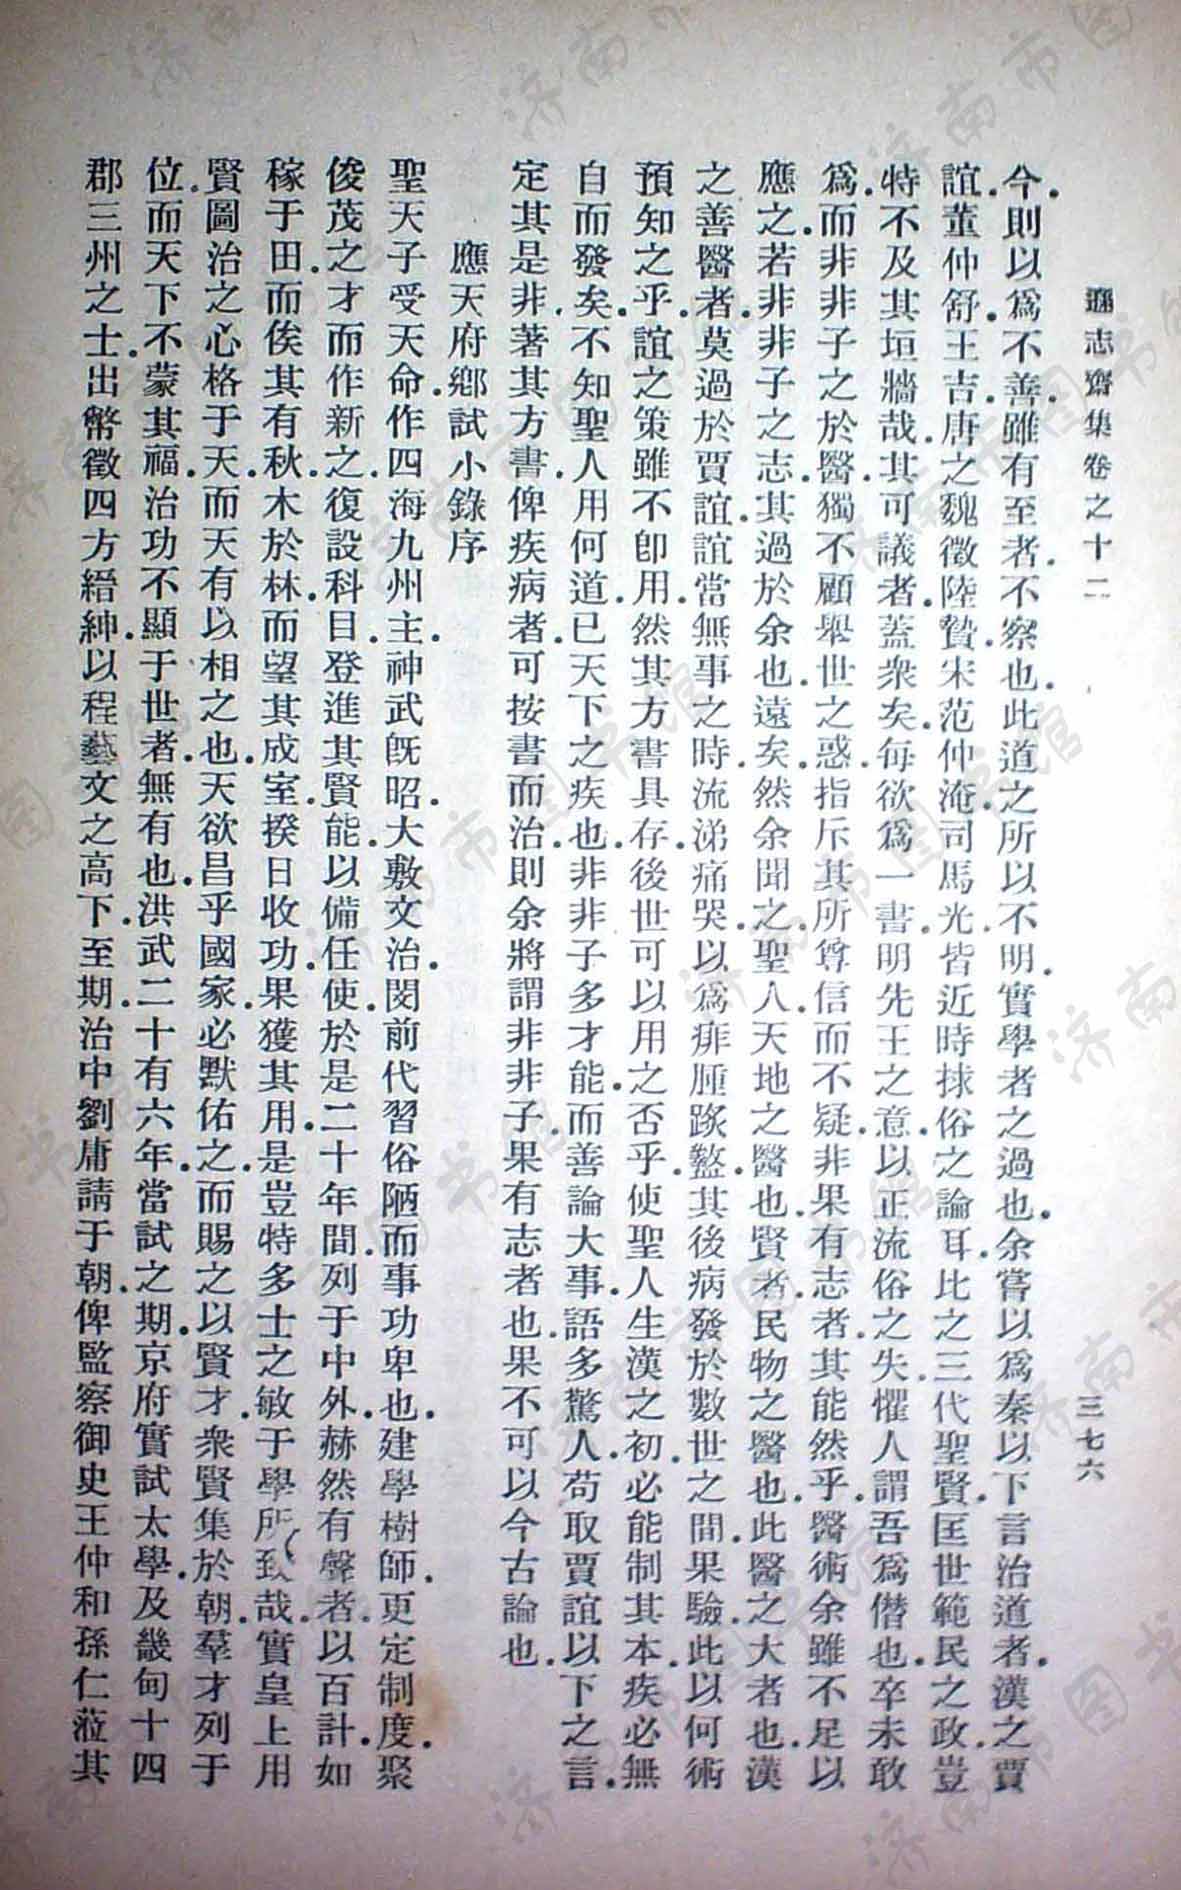 遜志齋集卷之十二
三七六
今則以爲不善雖有至者不察也此道之所以不明實學者之過也余嘗以爲秦以下言治道者漢之賈
誼董仲舒王吉唐之魏徵陸贄宋范仲淹司馬光皆近時捄俗之論耳比之三代聖賢匡世範民之政豈
特不及其垣牆哉其可議者蓋衆矣每欲爲一書明先王之意以正流俗之失懼人謂吾爲僭也卒未敢
爲而非非子之於醫獨不顧舉世之惑指斥其所尊信而不疑非果有志者其能然乎醫術余雖不足以
應之若非非子之志其過於余也遠矣然余聞之聖人天地之醫也賢者民物之醫也此醫之大者也漢
之善醫者莫過於賈誼誼當無事之時流涕痛哭以爲痱腫䟦盭其後病發於數世之間果驗此以何術
預知之乎誼之策雖不卽用然其方書具存後世可以用之否乎使聖人生漢之初必能制其本疾必無
自而發矣不知聖人用何道已天下之疾也非非子多才能而善論大事語多驚人苟取賈誼以下之言
定其是非著其方書俾疾病者可按書而治則余將謂非非子果有志者也果不可以今古論也
應天府鄉試小錄序
聖天子受天命作四海九州主神武旣昭大敷文治閔前代習俗陋而事功卑也建學樹師更定制度聚
俊茂之才而作新之復設科目登進其賢能以備任使於是二十年間列于中外赫然有聲者以百計如
稼于田而俟其有秋木於林而望其成室揆日收功果獲其用是豈特多士之敏于學所致哉實皇上用
賢圖治之心格于天而天有以相之也天欲昌乎國家必默佑之而賜之以賢才衆賢集於朝羣才列于
位而天下不蒙其福治功不顯于世者無有也洪武二十有六年當試之期京府實試太學及畿甸十四
郡三州之士出幣徵四方縉紳以程藝文之高下至期治中劉庸請于朝俾監察御史王仲和孫仁蒞其